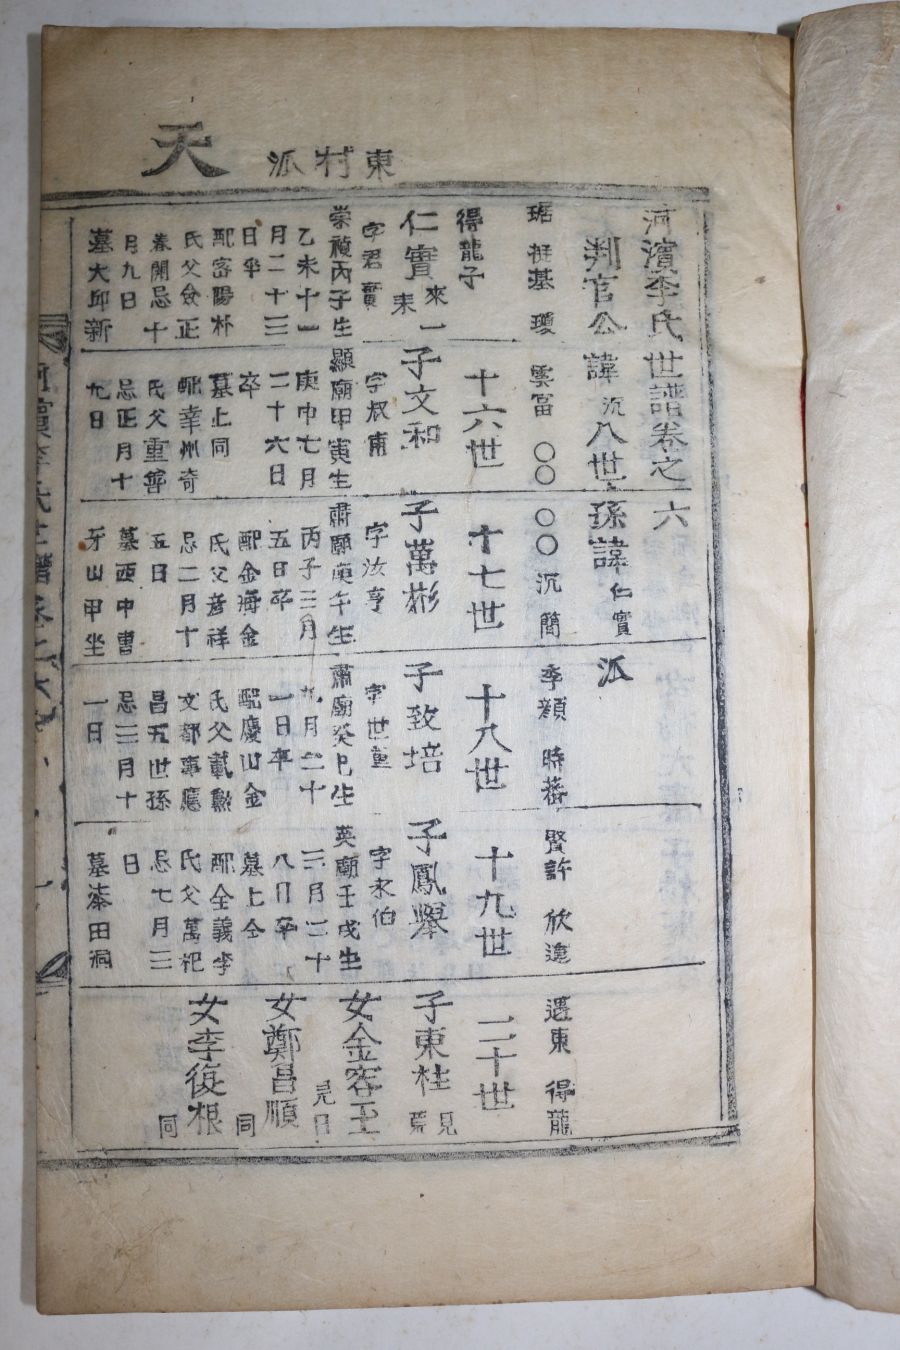 天 東村派
河濱李氏世譜卷之六
判官公諱沉八世孫諱仁實派
琚 挺基 瓊 雲富 〇〇 〇〇 沉 簡 季顏 時蕃 賢許 欣遠 遇東 得龍
得龍子 十六世 十七世 十八世 十九世 二十世
仁實
字君實
崇禎丙子生
乙未十一
月二十三
日卒
配密陽朴
氏父僉正
春開忌十
月九日
墓大邱新
子文和
字叔甫
顯廟甲寅生
庚申七月
二十六日
卒
墓上同
配幸州奇
氏父重
忌正月十
九日
子萬彬
字汝亨
肅廟庚午生
丙子三月
五日卒
配金海金
氏父彦祥
忌二月十
五日
墓西中
牙山甲坐
子致培
字世重
肅廟癸巳生
九月二十
一日卒
配慶山金
氏父載勲
文都事應
昌五世孫
忌三月十
一日
子鳳擧
字永伯
英廟壬戌生
三月二十
八日卒
墓上仝
配全義李
氏父萬杞
忌七月三
日
墓漆田洞
子東桂
女金容玉
女鄭昌順 同
女李復根 同